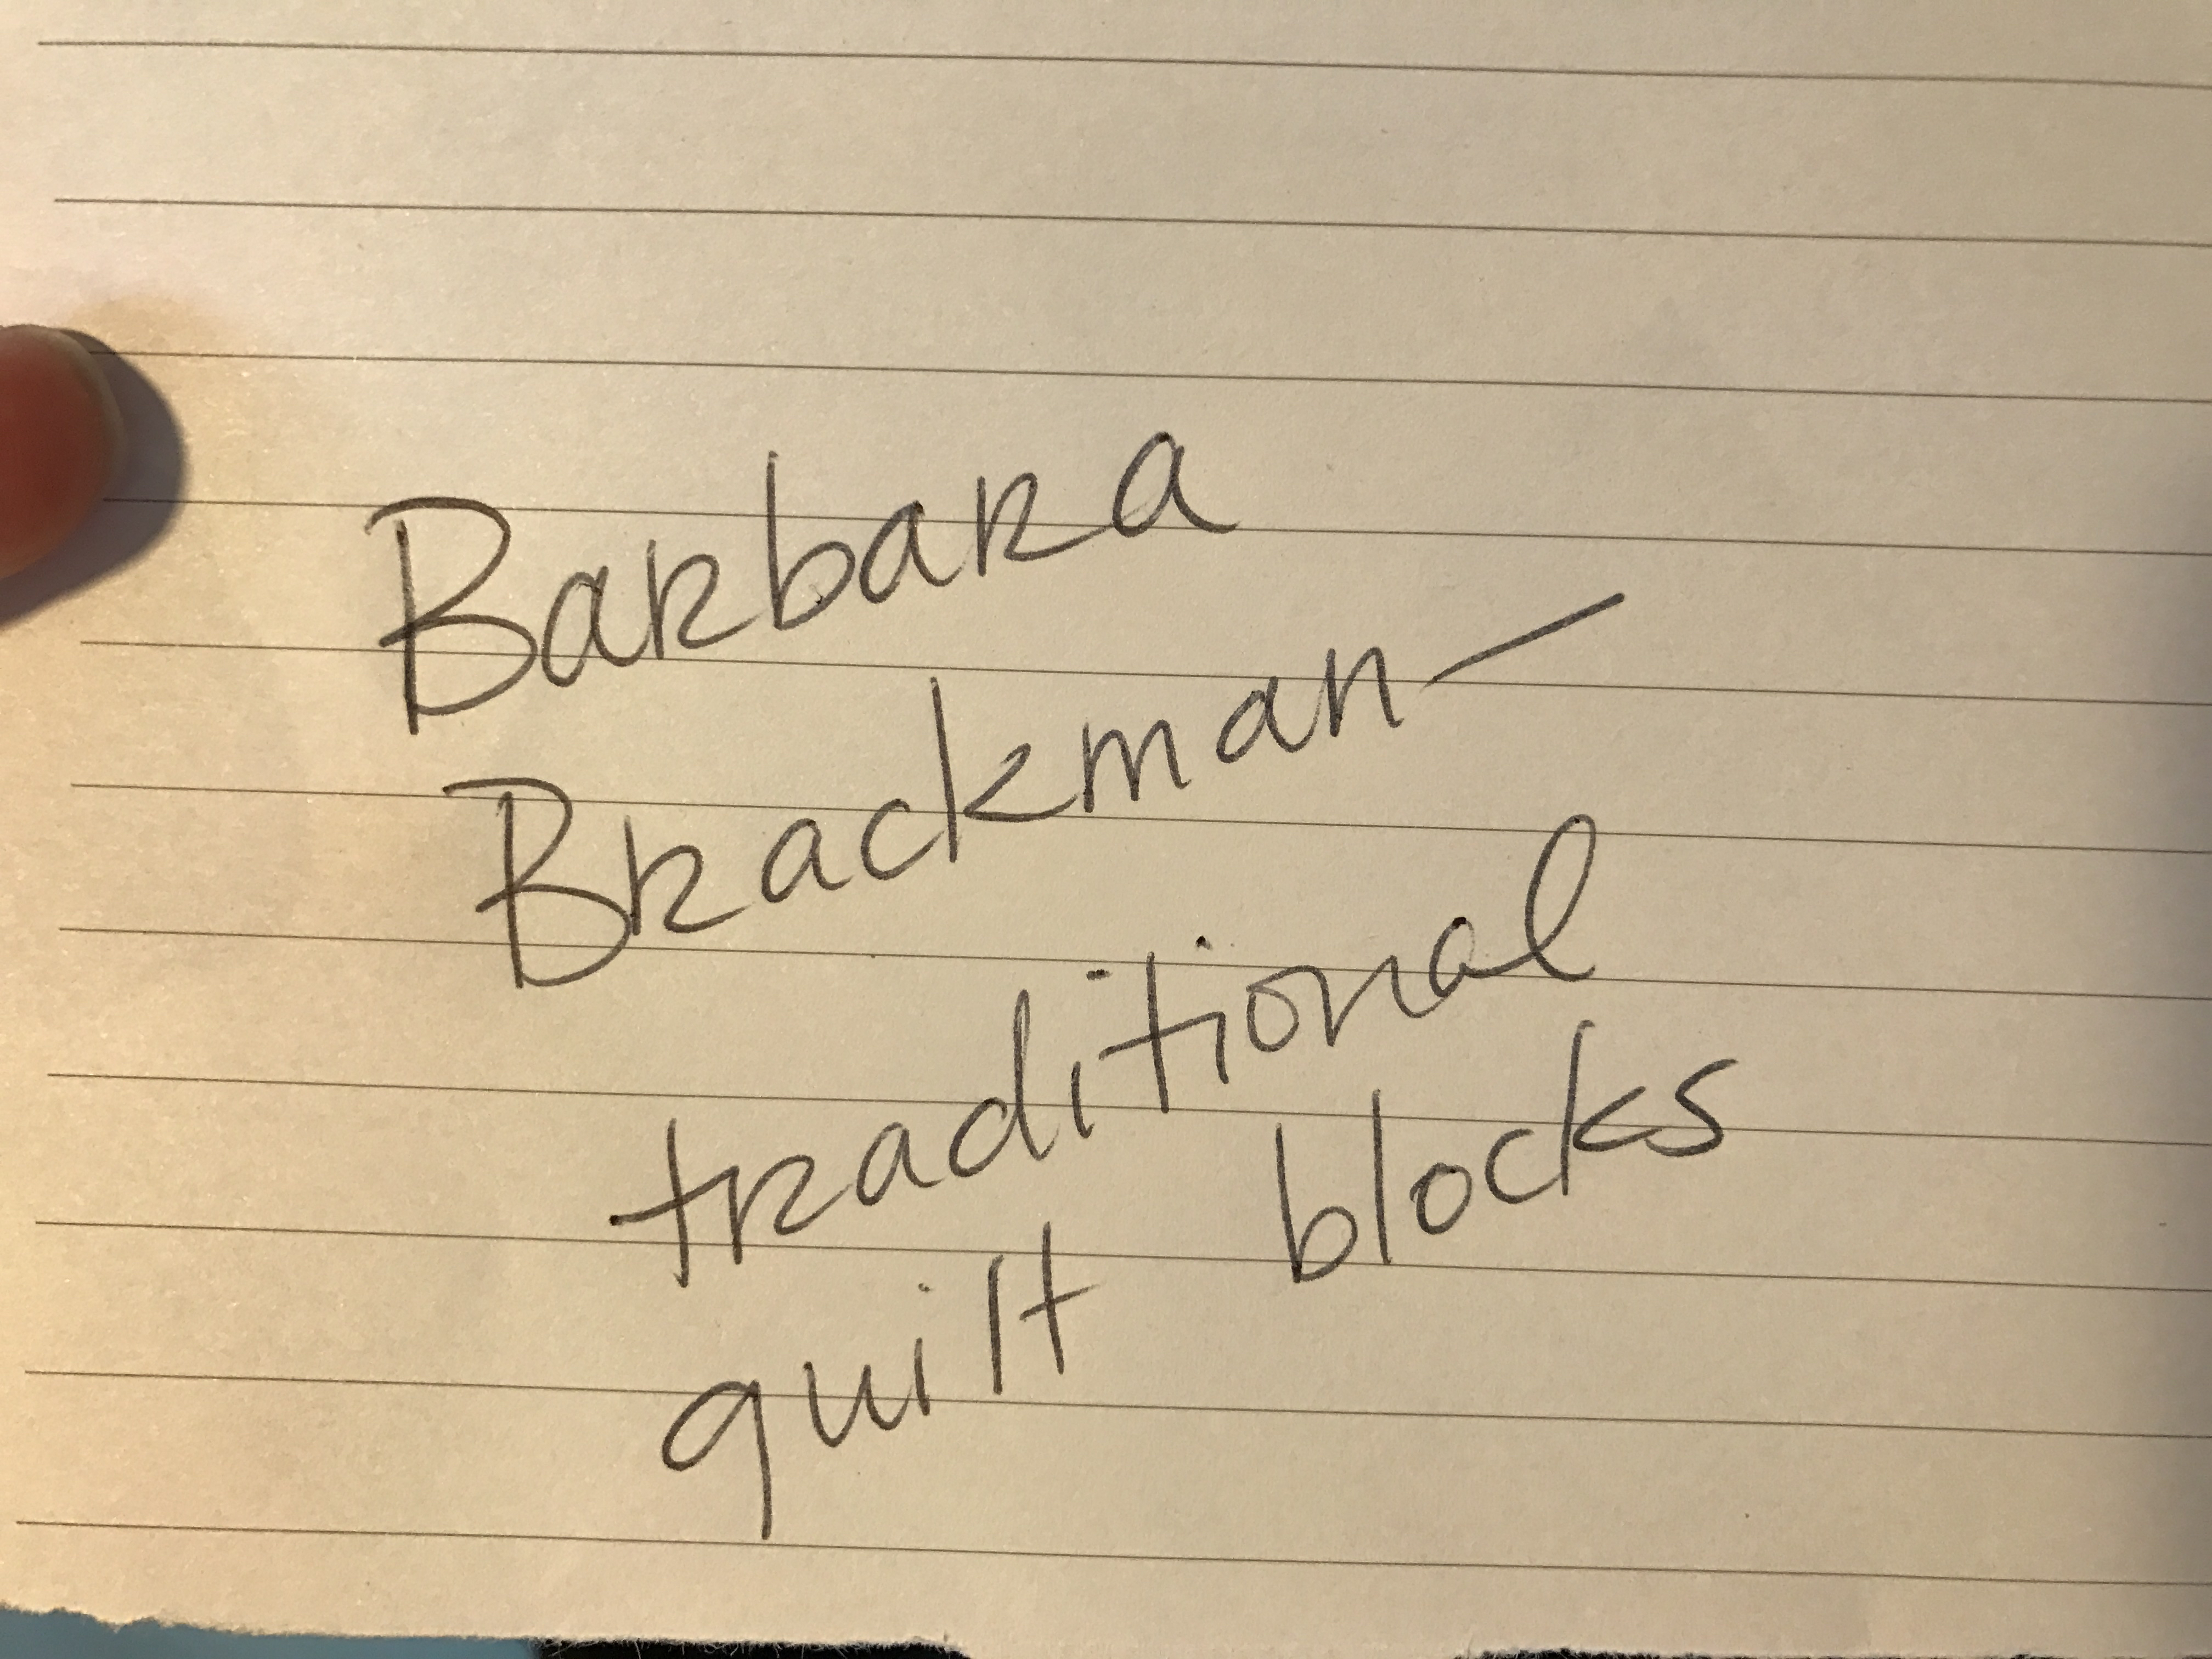 Barbara
Brackman—
traditional
quilt blocks